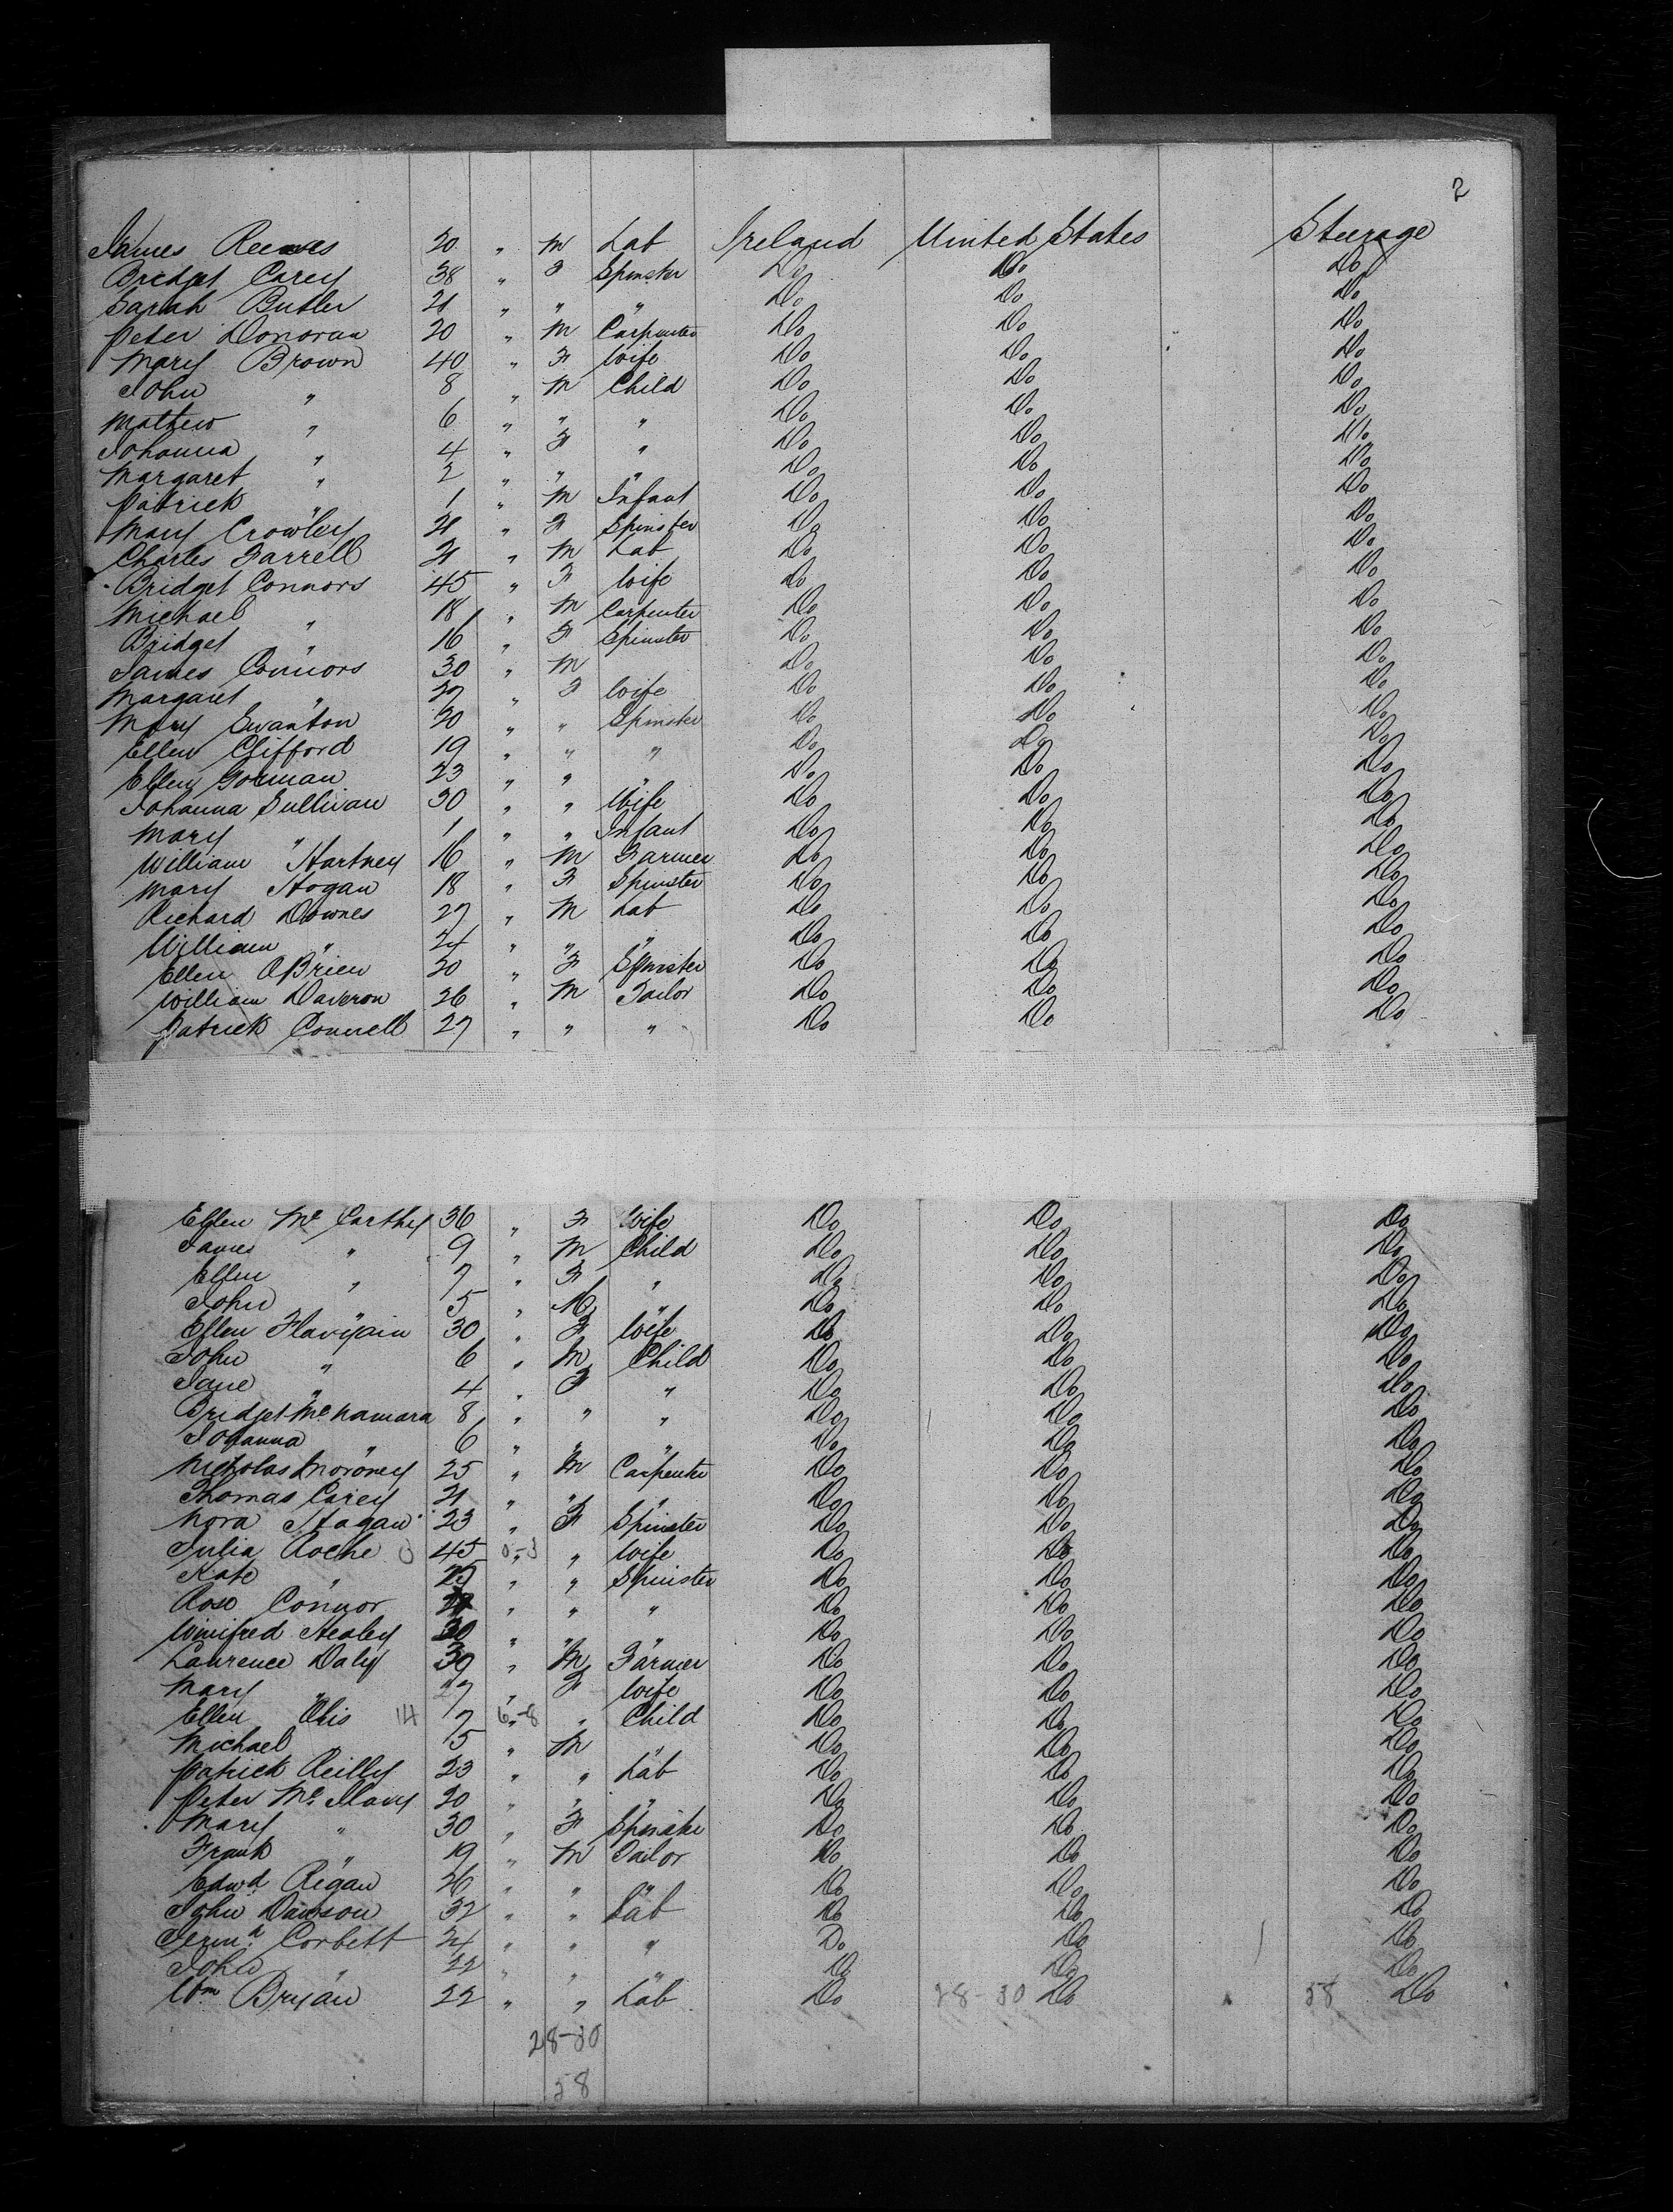 2
James Reeves 20 " M Lab Ireland United States Steerage
Bridget Carey 38 " F Spinster Do Do Do
Sarah Butler 21 " " " Do Do Do
Peter Donovan 20 " M Carpenter Do Do Do
Mary Brown 40 " F Wife Do Do Do
John " 8 " M Child Do Do Do
Mathew " 6 " " " Do Do Do
Johanna " 4 " F " Do Do Do
Margaret " 2 " " " Do Do Do
Patrick " 1 " M Infant Do Do Do
Mary Crowley 21 " F Spinster Do Do Do
Charles Farrell 21 " M Lab Do Do Do
Bridget Connors 45 " F Wife Do Do Do
Michael " 18 " M Carpenter Do Do Do
Bridget " 16 " F Spinster Do Do Do
James Connors 30 " M Do Do Do
Margaret " 27 " F Wife Do Do Do
Mary Swanton 20 " " Spinster Do Do Do
Ellen Clifford 19 " " " Do Do Do
Ellen Gorman 23 " " " Do Do Do
Johanna Sullivan 30 " " Wife Do Do Do
Mary " 1 " " Infant Do Do Do
William Hartney 16 " M Farmer Do Do Do
Mary Hogan 18 " F Spinster Do Do Do
Richard Downes 27 " M Lab Do Do Do
William " 24 " " " Do Do Do
Ellen OBrien 20 " F Spinster Do Do Do
William Daveron 26 " M Tailor Do Do Do
Patrick Connell 27 " " " Do Do Do
Ellen Mc Carthy 36 " F Wife Do Do Do
James " 9 " M Child Do Do Do
Ellen " 7 " F " Do Do Do
John " 5 " M " Do Do Do
Ellen 30 " F Wife Do Do Do
John " 6 " M Child Do Do Do
Jane " 4 " F " Do Do Do
Bridget McNamara 8 " " " Do Do Do
Johanna " 6 " " " Do Do Do
Nicholas Moroney 25 " M Carpenter Do Do Do
Thomas Carey 21 " " " Do Do Do
Nora Hagan 23 " F Spinster Do Do Do
Julia Roche 45 " " Wife Do Do Do
Kate " " " Spinster Do Do Do
Rose Connor " " " Do Do Do
Winifred Healey 20 " " " Do Do Do
Laurence Daly 39 " M Farmer Do Do Do
Mary " 27 " F Wife Do Do Do
Ellen 14 7 6-8 " Child Do Do Do
Michael 5 " M " Do Do Do
Patrick Reilly 23 " " Lab Do Do Do
Peter Mc 20 " " " Do Do Do
Mary " 30 " F Spinster Do Do Do
Frank " 19 " M Tailor Do Do Do
Edwd Regan 26 " " " Do Do Do
John Dawson 32 " " Lab Do Do Do
Jermh Corbett 24 " " " Do Do Do
John " 22 " " " Do Do Do
Wm Bryan 22 " " Lab Do 28-30 Do 58 Do
28-30
58